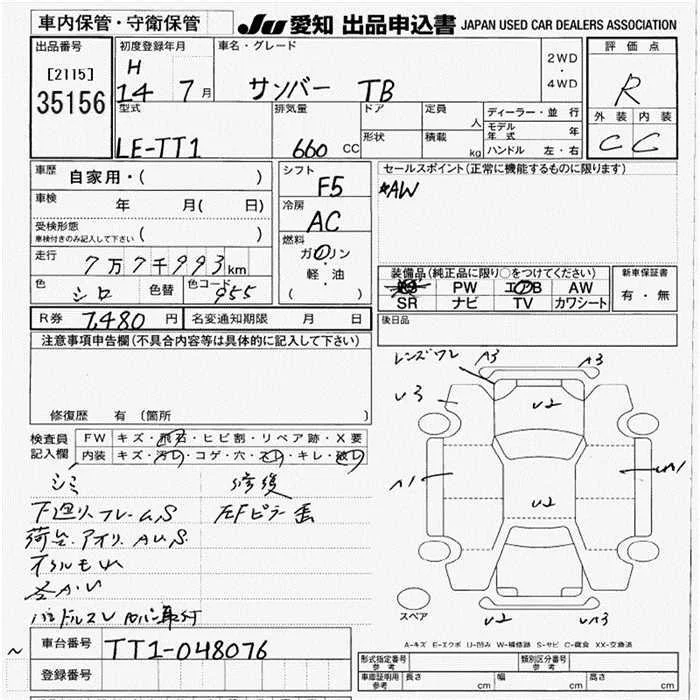 車内保管・守衛保管
JU 愛知 出品申込書 JAPAN USED CAR DEALERS ASSOCIATION
出品番号
[2115]
35156
初度登録年月
H
14 7月
車名・グレード
サンバー TB
2WD
・
4WD
評価点
R
外装 内装
C C
型式
LE-TT1
排気量
660 CC
ドア
形状
定員
人
積載
kg
ディーラー・並行
モデル年式 年
ハンドル 左・右
車歴
自家用・( )
車検
年 月( 日)
受検形態
車検付きのみ記入して下さい ( )
走行
7万7千993km
色
シロ
色替
色コード
955
シフト
F5
冷房
AC
燃料
ガソリン
・
軽・油
( )
セールスポイント(正常に機能するものに限ります)
*AW
装備品(純正品に限り○をつけてください)
PW エアB AW
SR ナビ TV カワシート
新車保証書
有・無
R券 7,480 円
名変通知期限 月 日
後日品
注意事項申告欄(不具合内容等は具体的に記入して下さい)
修復歴 有 (箇所 )
検査員
記入欄
FW キズ・飛石・ヒビ割・リペア跡・X要
内装 キズ・汚れ・コゲ・穴・スレ・キレ・破レ
シミ
修後
レンズワレ
A3 A3
U3
U2
A1
U2
U2
スペア
A-キズ E-エクボ U-凹み W-補修跡 S-サビ C-腐食 XX-交換済
車台番号
TT1-048076
登録番号
形式指定番号
参考
類別区分番号
参考
車庫証明用
参考
長さ cm 幅 cm 高さ cm